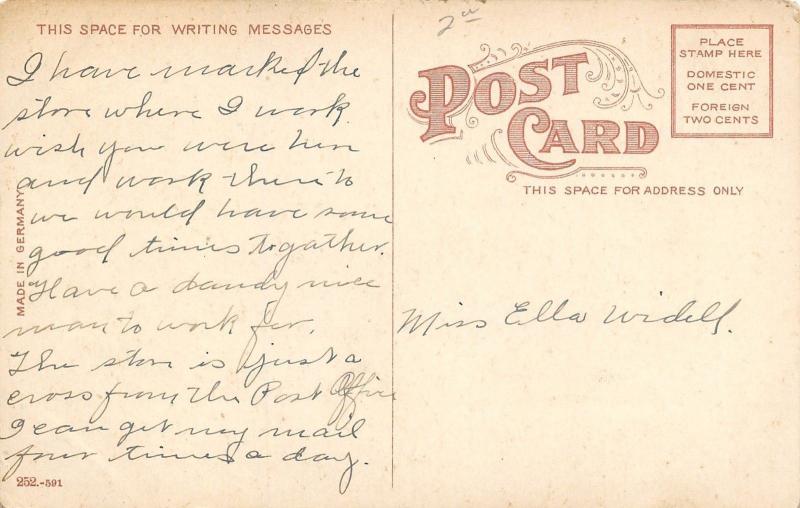 THIS SPACE FOR WRITING MESSAGES
I have marked the
store where I work
wish you were hire
and work there to
we would have some
good times together.
Have a dandy nice
man to work for.
The store is just a
cross from the Post Office
I can get my mail
four times a day.
MADE IN GERMANY
252.-591
POST CARD
THIS SPACE FOR ADDRESS ONLY
PLACE
STAMP HERE
DOMESTIC
ONE CENT
FOREIGN
TWO CENTS
Miss Ella Widell.